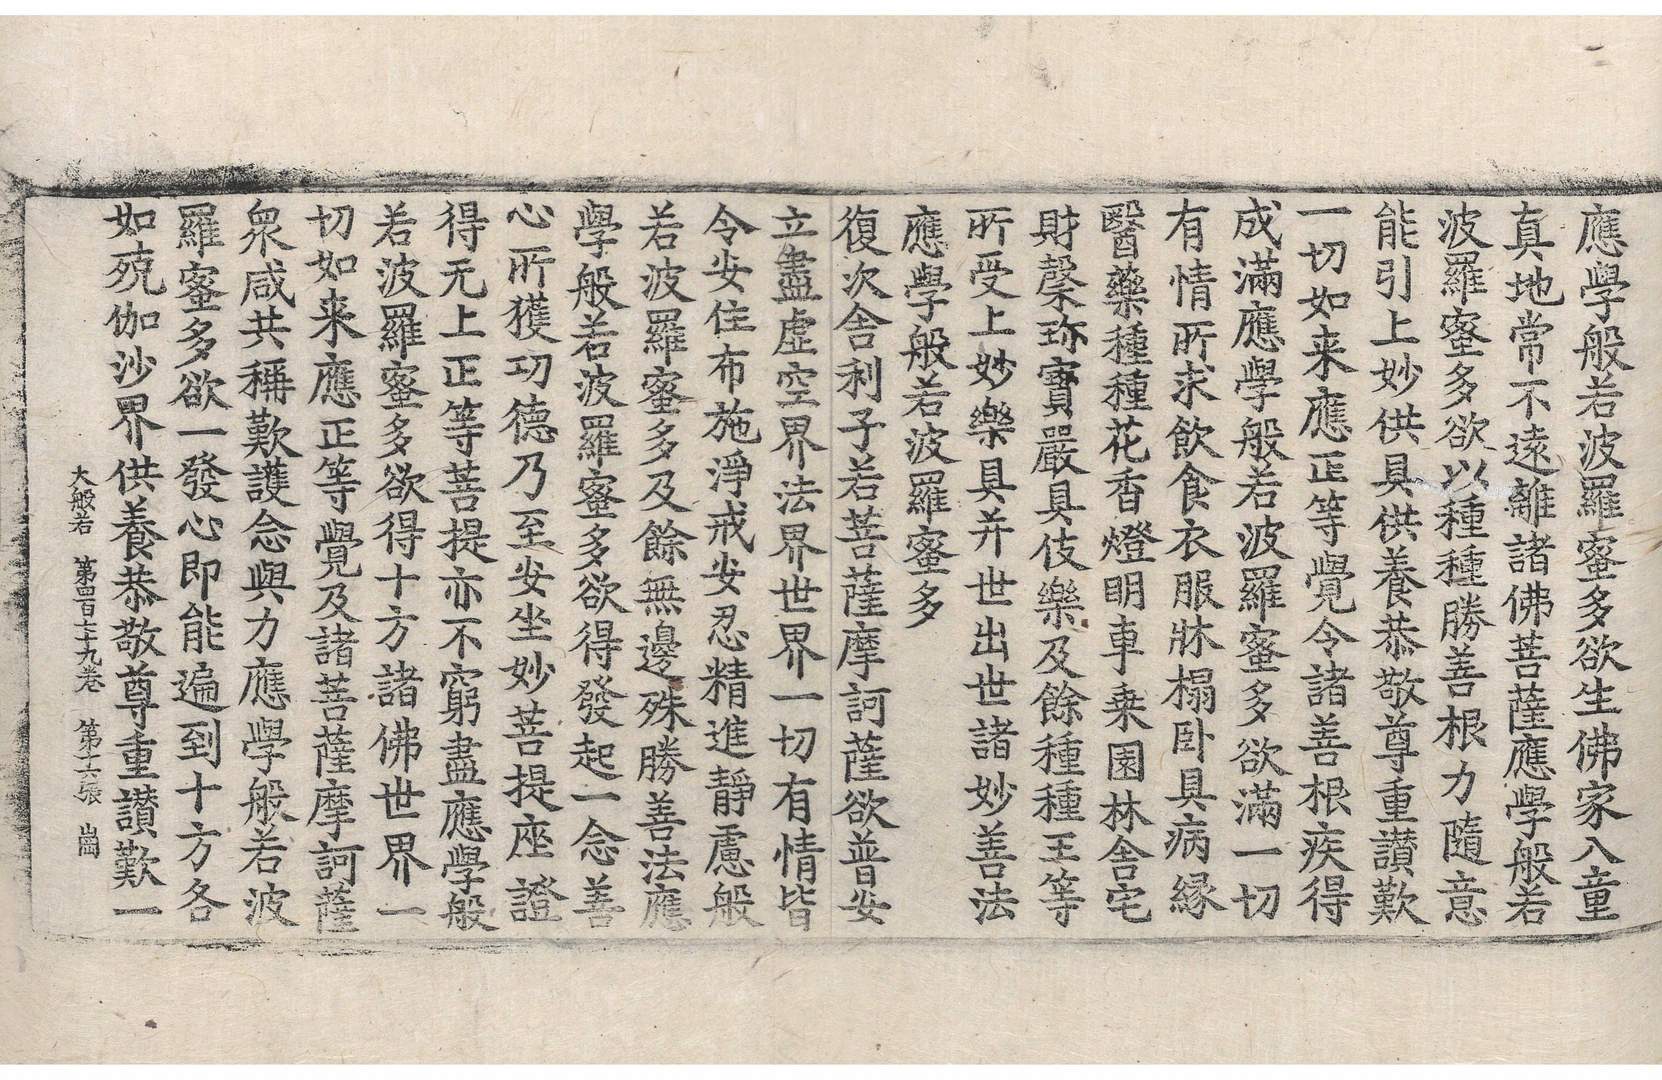 應學般若波羅蜜多欲生佛家入童
真地常不遠離諸佛菩薩應學般若
波羅蜜多欲以種種勝善根力隨意
能引上妙供具供養恭敬尊重讃歎
一切如来應正等覺令諸善根疾得
成滿應學般若波羅蜜多欲滿一切
有情所求飲食衣服牀榻卧具病縁
醫藥種種花香燈明車乗園林舎宅
財榖珎寶嚴具伎樂及餘種種王等
所受上妙樂具并世出世諸妙善法
應學般若波羅蜜多
復次舎利子若菩薩摩訶薩欲普安
立盡虚空界法界世界一切有情皆
令安住布施淨戒安忍精進靜慮般
若波羅蜜多及餘無邊殊勝善法應
學般若波羅蜜多欲得發起一念善
心所獲功德乃至安坐妙菩提座證
得无上正等菩提亦不窮盡應學般
若波羅蜜多欲得十方諸佛世界一
切如来應正等覺及諸菩薩摩訶薩
衆咸共稱歎護念與力應學般若波
羅蜜多欲一發心即能遍到十方各
如殑伽沙界供養恭敬尊重讃歎一
大般若 第四百七十九卷 第十六張 崗